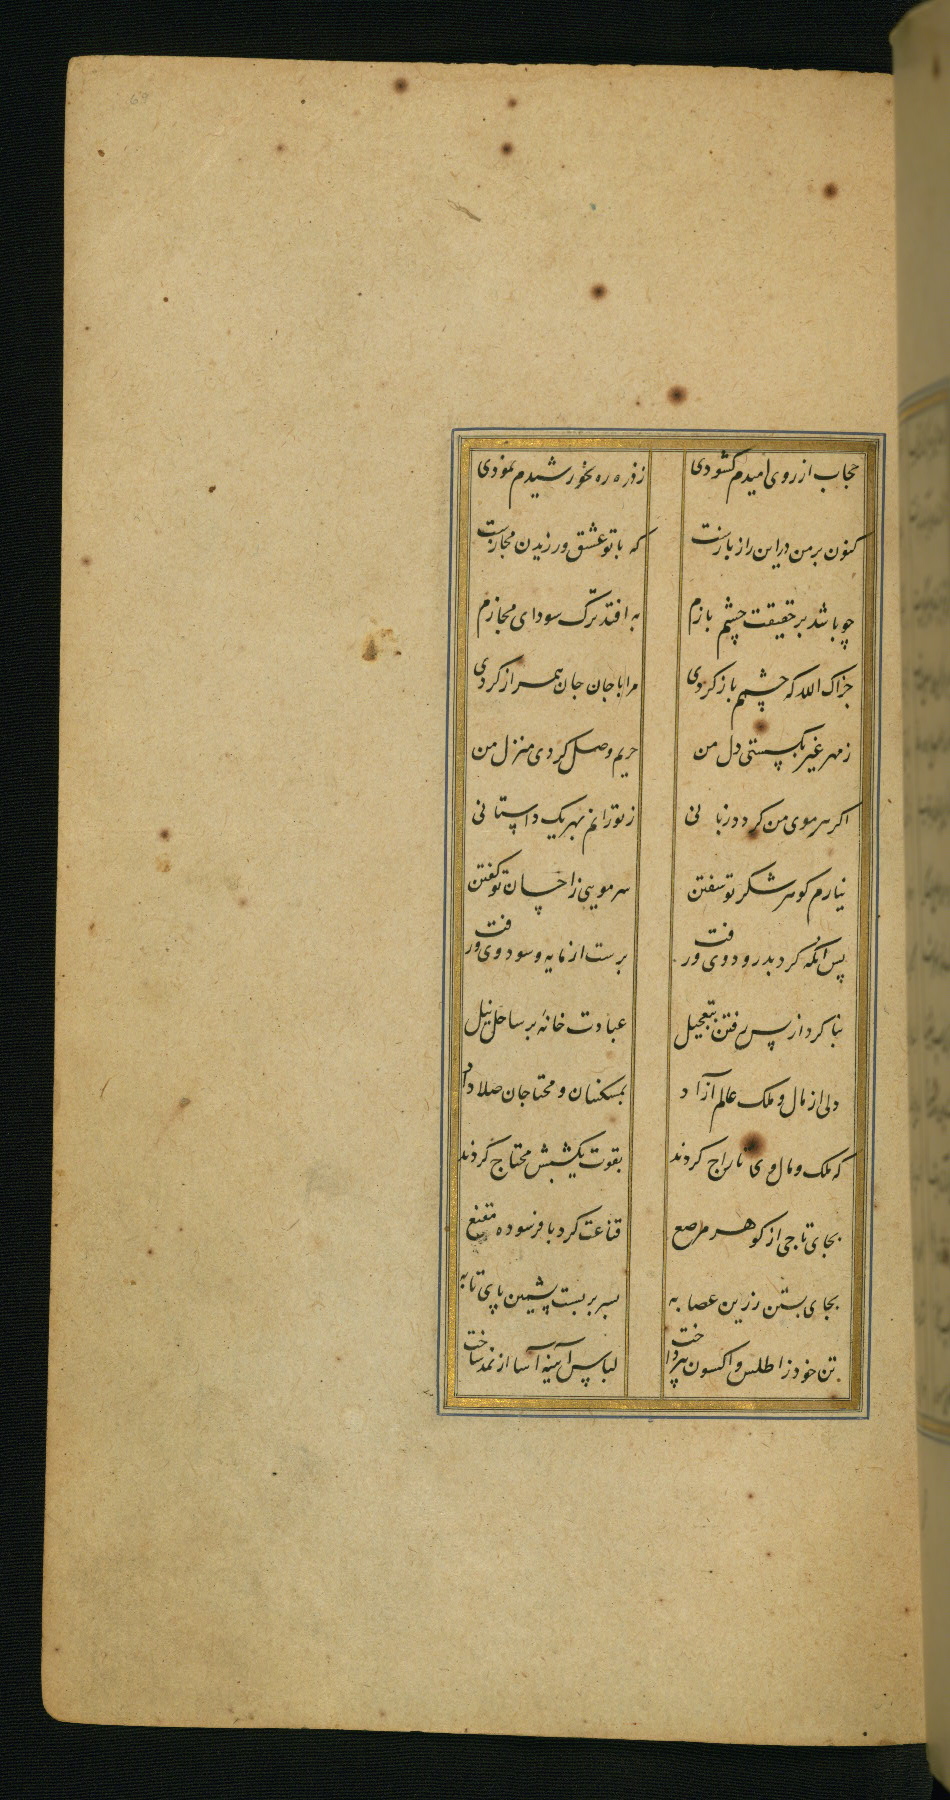 حجاب از روی امیدم کشودی زذره ره بخورشیدم نمودی
کنون بر من در این راز بازست که با تو عشق ورزیدن مجازست
چو باشد بر حقیقت چشم بازم به افتد ترک سودای مجازم
جزاک الله که چشمم باز کردی مرا با جان جان همراز کردی
ز مهر غیر بکسستی دل من حریم وصل کردی منزل من
اکر هر موی من کردد زبانی ز تو رانم بهر یک داستانی
نیارم کوهر شکر تو سفتن سر مویی ز احسان تو کفتن
پس آنکه کرد بدرود وی و رفت برست از مایه و سود وی و رفت
بنا کرد از پس رفتن بتعجیل عبادت خانهٔ بر ساحل نیل
دلی از مال و ملک عالم آزاد بمسکینان و محتاجان صلا داد
که ملک و مال وی تاراج کردند بقوت یکشبش محتاج کردند
بجای تاجی از کوهر مرصع قناعت کرد با فرسوده مقنع
بجای بستن زرین عصابه بسر بر بست پشمین پای تابه
تن خود ز اطلس و اکسون بپرداخت لباس آینه آسا از نمد ساخت